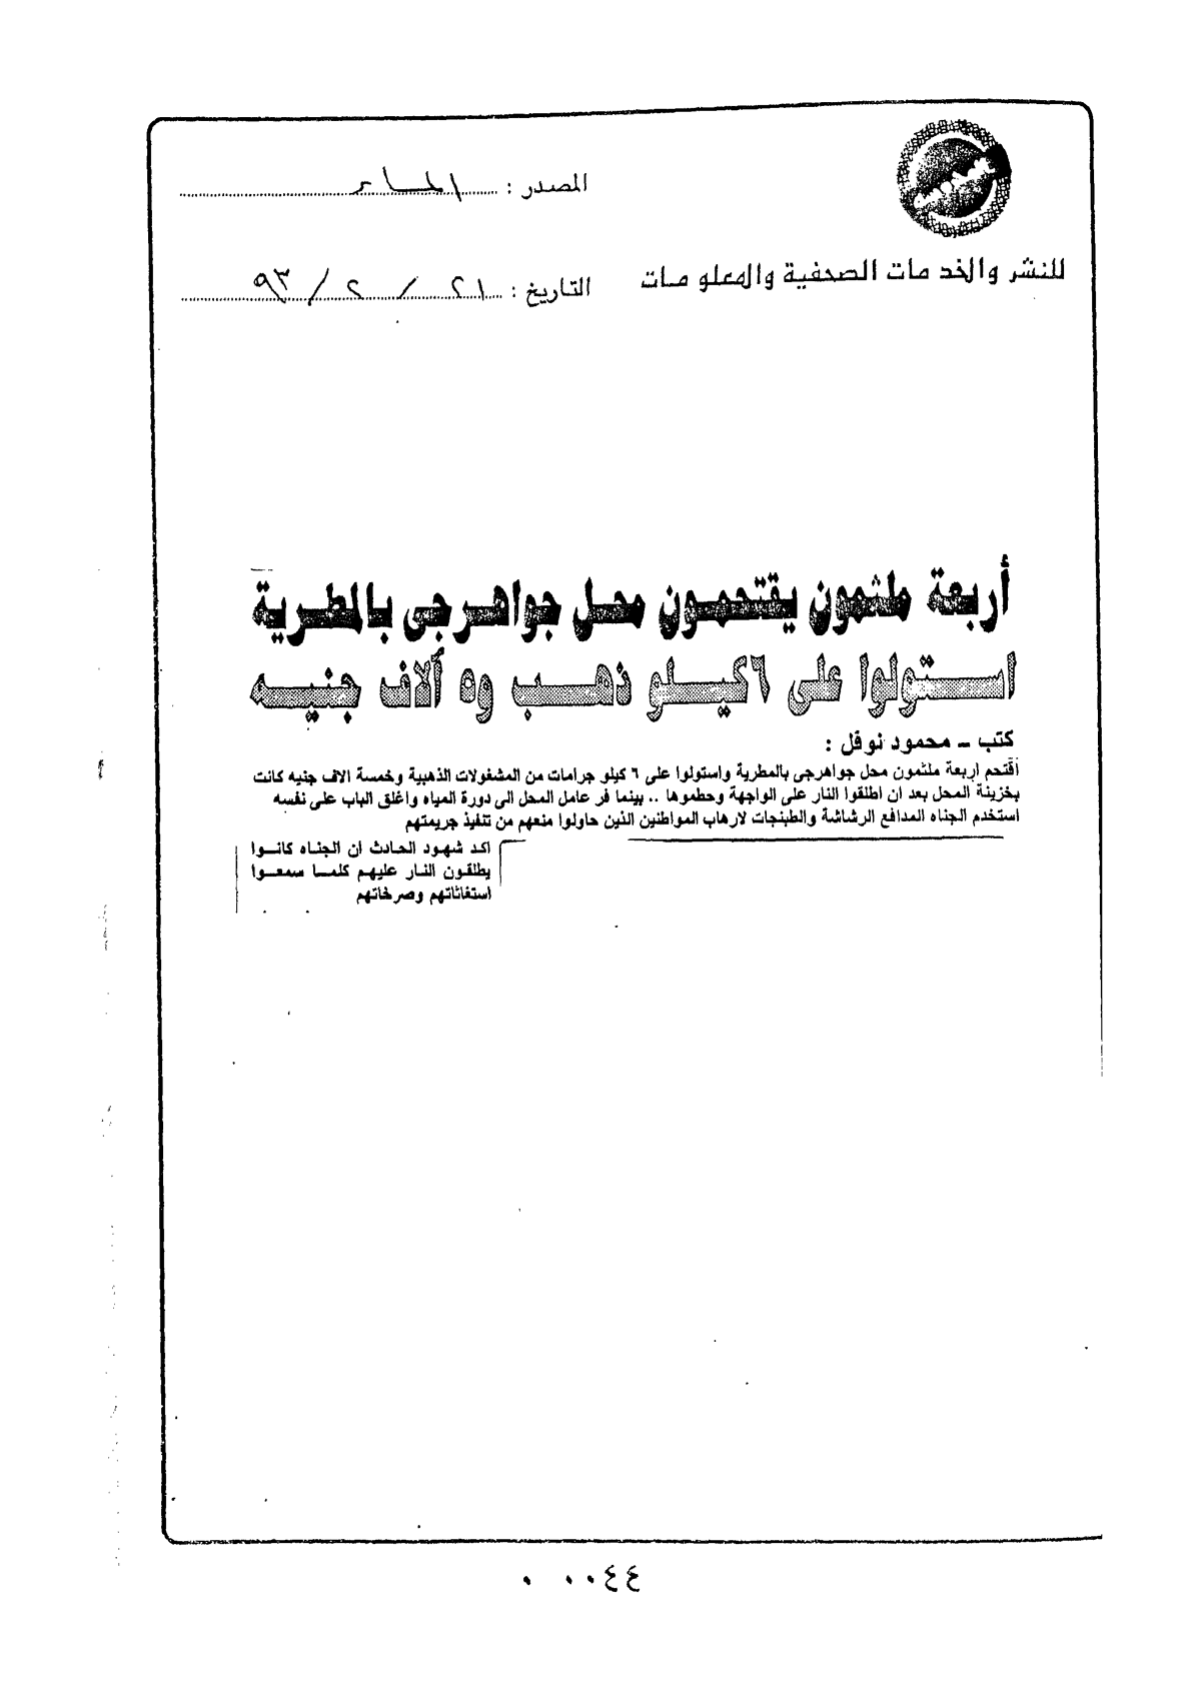 المصدر : المساء
للنشر والخدمات الصحفية والمعلومات
التاريخ : ٢١ / ٢ / ٩٣
أربعة ملثمون يقتحمون محل جواهرجى بالمطرية
استولوا على ٦ كيلو ذهب و٥ آلاف جنيه
كتب - محمود نوفل :
أقتحم اربعة ملثمون محل جواهرجى بالمطرية واستولوا على ٦ كيلو جرامات من المشغولات الذهبية وخمسة الاف جنيه كانت
بخزينة المحل بعد ان اطلقوا النار على الواجهة وحطموها .. بينما فر عامل المحل الى دورة المياه واغلق الباب على نفسه
استخدم الجناه المدافع الرشاشة والطبنجات لارهاب المواطنين الذين حاولوا منعهم من تنفيذ جريمتهم
اكد شهود الحادث ان الجناه كانوا
يطلقون النار عليهم كلما سمعوا
استغاثاتهم وصرخاتهم
٠ ٠٠٤٤